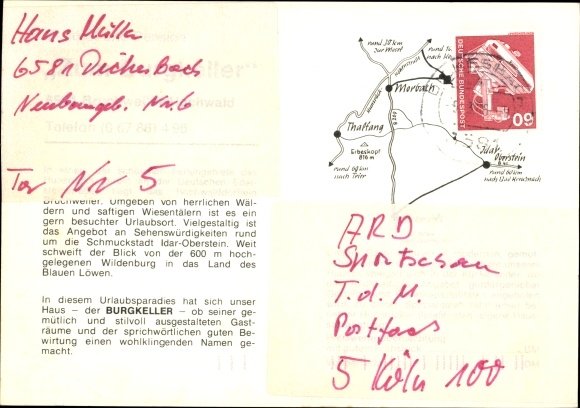 Hans Müller
6581 Dichesbach
Nr. 6
Tor Nr 5
Bruchweiler. Umgeben von herrlichen Wäl-
dern und saftigen Wiesentälern ist es ein
gern besuchter Urlaubsort. Vielgestaltig ist
das Angebot an Sehenswürdigkeiten rund
um die Schmuckstadt Idar-Oberstein. Weit
schweift der Blick von der 600 m hoch-
gelegenen Wildenburg in das Land des
Blauen Löwen.
In diesem Urlaubsparadies hat sich unser
Haus – der BURGKELLER – ob seiner ge-
mütlich und stilvoll ausgestalteten Gast-
räume und der sprichwörtlichen guten Be-
wirtung einen wohlklingenden Namen ge-
macht.
rund 30 km
zur Mosel
Morbach
Thalfang
Erbeskopf
816 m
rund 60 km
nach Trier
Idar-
Oberstein
rund 60 km
nach Bad Kreuznach
DEUTSCHE BUNDESPOST
60
ARD
Sportschau
T.d.M.
Postfach
5 Köln 100